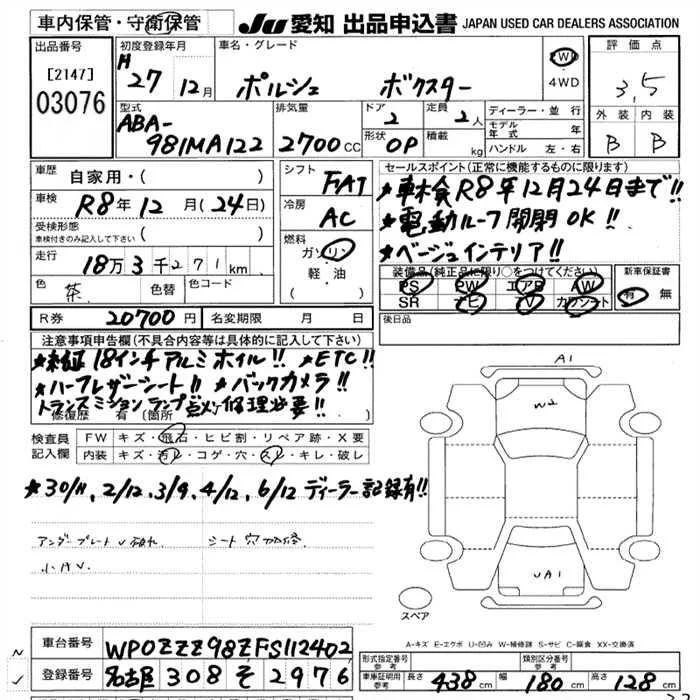 車内保管・守衛保管
JU 愛知 出品申込書 JAPAN USED CAR DEALERS ASSOCIATION
出品番号
[2147]
03076
初度登録年月
H 27年 12月
車名・グレード
ポルシェ ボクスター
2WD
4WD
評価点
3,5
外装 内装
B B
型式
ABA-
981MA122
排気量
2700CC
ドア
2
定員
2人
形状
OP
積載
kg
ディーラー・並行
モデル年式 年
ハンドル 左・右
車歴 自家用・( )
車検 R8年12月(24日)
受検形態
車検付きのみ記入して下さい ( )
走行 18万3千271km
色 茶 色替 色コード
シフト
FAT
冷房
AC
燃料
ガソリン
軽・油
( )
セールスポイント(正常に機能するものに限ります)
★車検R8年12月24日まで!!
★電動ルーフ開閉OK!!
★ベージュインテリア!!
装備品(純正品に限り〇をつけてください)
PS PW エアB AW
SR ナビ TV カワシート
新車保証書
有 無
R券 20700円 名変期限 月 日
後日品
注意事項申告欄(不具合内容等は具体的に記入して下さい)
★純正18インチアルミホイル!! ★ETC!!
★ハーフレザーシート!! ★バックカメラ!!
トランスミションランプ点灯修理必要!!
修復歴 有(箇所
検査員記入欄
FW キズ・飛石・ヒビ割・リペア跡・X要
内装 キズ・汚レ・コゲ・穴・スレ・キレ・破レ
★30/11, 2/12, 3/9, 4/12, 6/12 ディーラー記録有!!
アンダープレート 破れ シート穴
小キV
A1
W2
UA1
スペア
A-キズ E-エクボ U-凹み W-補修跡 S-サビ C-腐食 XX-交換済
N
車台番号 WP0ZZZ98ZFS112402
✓
登録番号 名古屋 308 そ 2976
形式指定番号
参考
類別区分番号
参考
車庫証明用
参考
長さ 438cm 幅 180cm 高さ 128cm